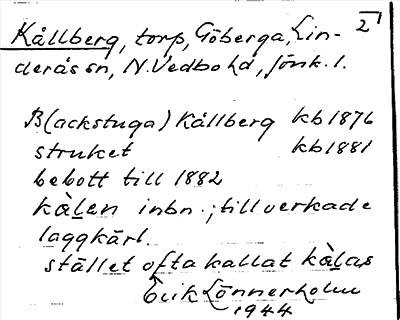 2
Kållberg, torp, Göberga, Lin-
deråssn, N. Vedbo hd, Jönk. l.
B(ackstuga) Kållberg kb 1876
struket kb 1881
bebott till 1882
kàlen inbn.; tillverkade
laggkärl.
stället ofta kallat kàlas
Erik Lönnerholm
1944